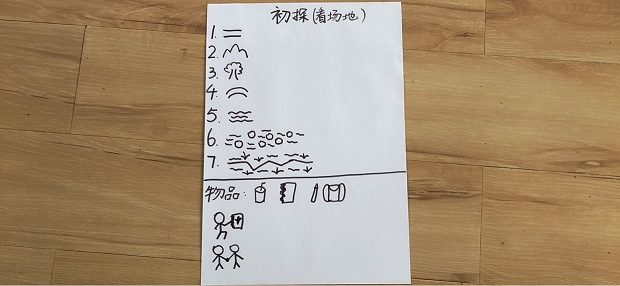 初探(看场地)
1.
2.
3.
4.
5.
6.
7.
物品: